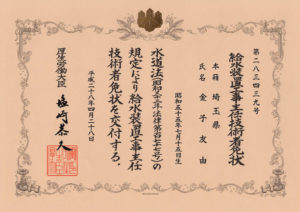 第二八三四三九号
給水装置工事主任技術者免状
本籍 埼玉県
氏名 金子友由
昭和五十五年七月十五日生
水道法(昭和三十二年法律第百七十七号)の
規定により給水装置工事主任
技術者免状を交付する。
平成二十八年四月二十八日
厚生労働大臣
塩崎恭久